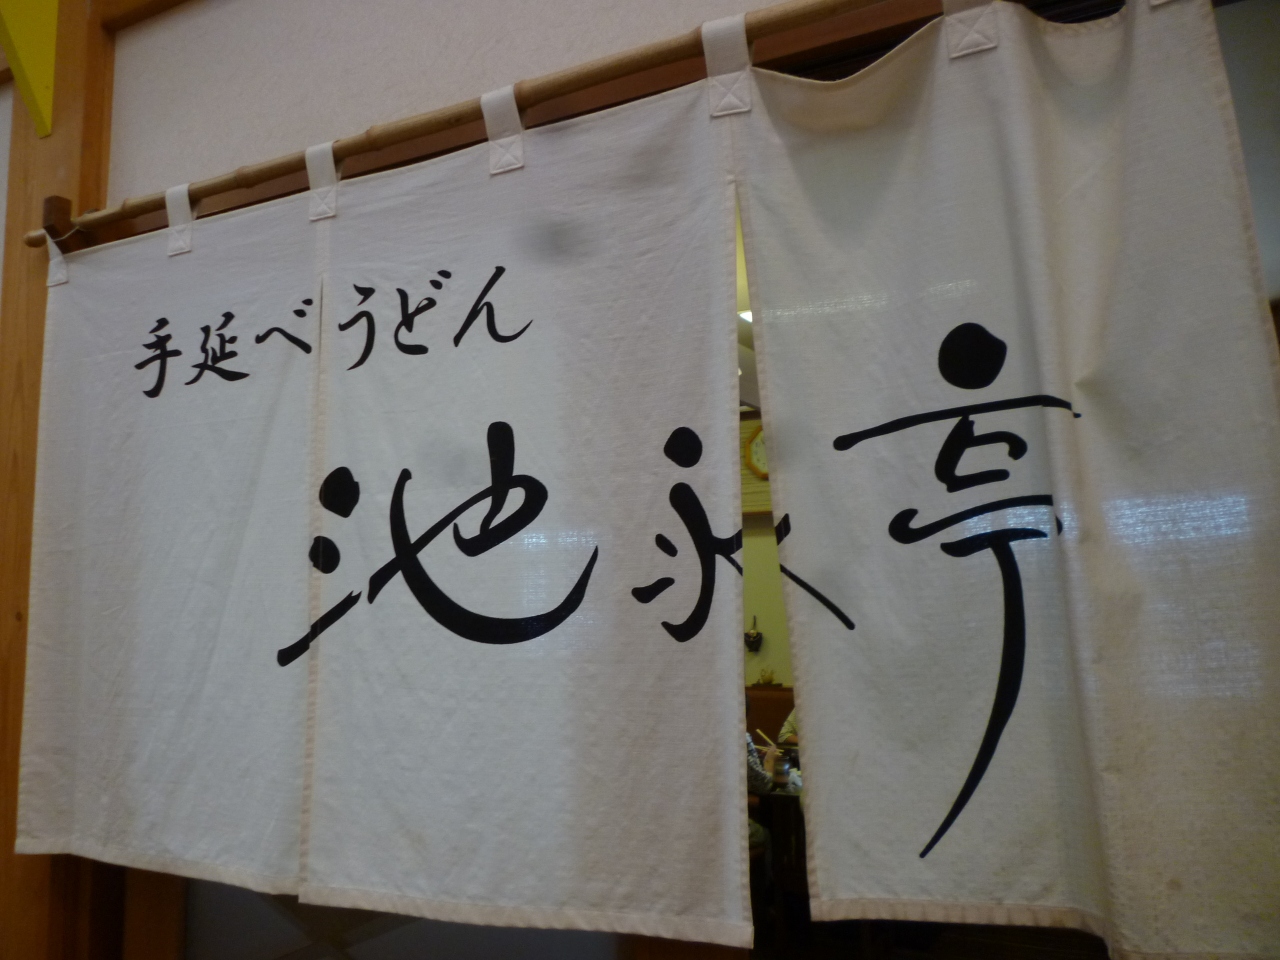 手延べうどん
池永亭